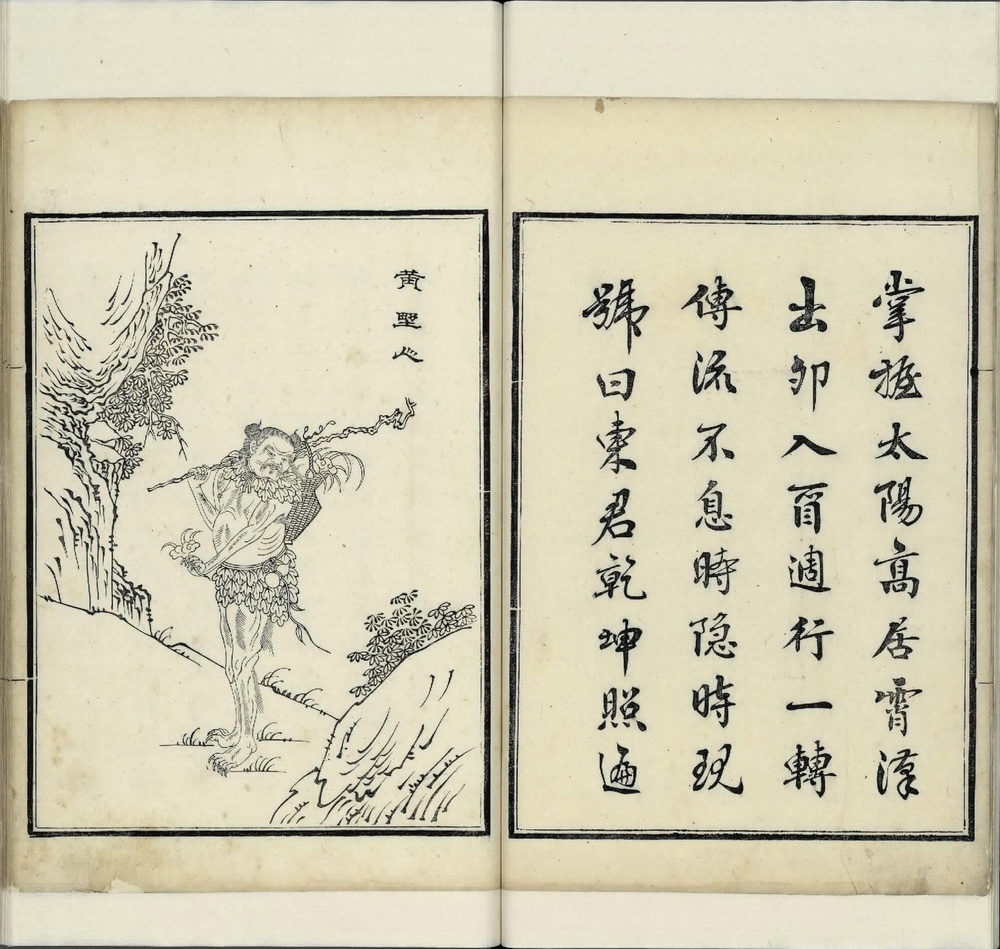 掌握太陽高居霄漢
出卯入酉週行一轉
傳流不息時隐時現
號曰東君乾坤照遍
黄